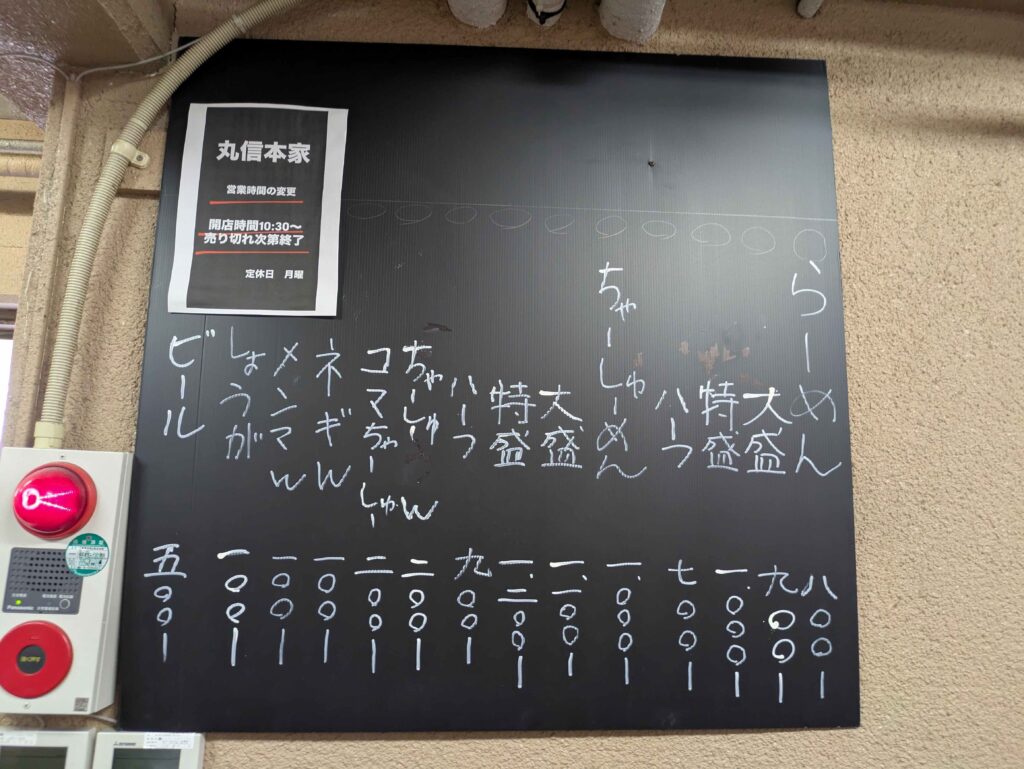 丸信本家
営業時間の変更
開店時間10:30〜
売り切れ次第終了
定休日 月曜
らーめん 八〇〇ー
大盛 九〇〇ー
特盛 一.〇〇〇ー
ハーフ 七〇〇ー
ちゃーしゅーめん 一.〇〇〇ー
大盛 一.一〇〇ー
特盛 一.二〇〇ー
ハーフ 九〇〇ー
ちゃーしゅーW 二〇〇ー
コマちゃーしゅー 二〇〇ー
ネギW 一〇〇ー
メンマW 一〇〇ー
しょうが 一〇〇ー
ビール 五〇〇ー
Panasonic